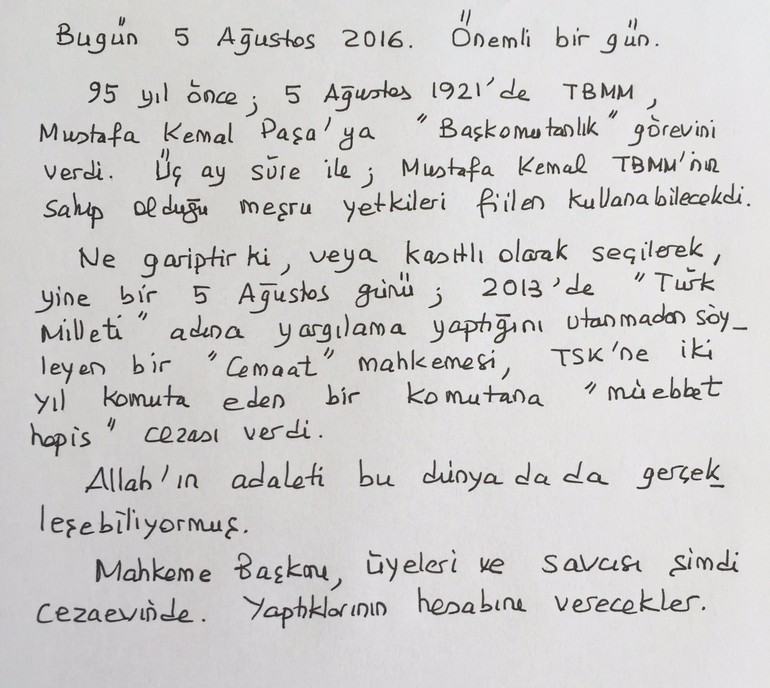 Bugün 5 Ağustos 2016. Önemli bir gün.
95 yıl önce; 5 Ağustos 1921'de TBMM,
Mustafa Kemal Paşa'ya "Başkomutanlık" görevini
verdi. Üç ay süre ile; Mustafa Kemal TBMM'nin
sahip olduğu meşru yetkileri fiilen kullanabilecekdi.
Ne gariptir ki, veya kasıtlı olarak seçilerek,
yine bir 5 Ağustos günü; 2013'de "Türk
Milleti" adına yargılama yaptığını utanmadan söy_
leyen bir "Cemaat" mahkemesi, TSK'ne iki
yıl komuta eden bir komutana "müebbet
hapis" cezası verdi.
Allah'ın adaleti bu dünya da da gerçek_
leşebiliyormuş.
Mahkeme Başkanı, üyeleri ve savcısı şimdi
cezaevinde. Yaptıklarının hesabını verecekler.